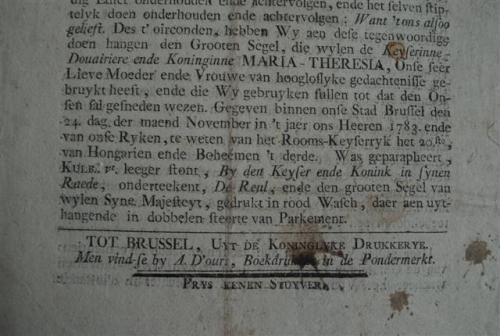 dig Edict onderhouden ende achtervolgen, ende het selven stip-
telyk doen onderhouden ende achtervolgen: Want 't ons alsoo
gelieft. Des t'oirconden, hebben Wy aen dese tegenwoordige
doen hangen den Grooten Segel, die wylen de Keyserinne-
Douairiere ende Koninginne MARIA-THERESIA, Onse seer
Lieve Moeder ende Vrouwe van hoogloflyke gedachtenisse ge-
bruykt heeft, ende die Wy gebruyken sullen tot dat den On-
sen sal gesneden wezen. Gegeven binnen onse Stad Brussel den
24. dag der maend November in 't jaer ons Heeren 1783. ende
van onse Ryken, te weten van het Rooms-Keyserryk het 20.ste,
van Hongarien ende Beheemen 't derde. Was geparapheert,
KULB. vt. leeger stont, By den Keyser ende Konink in synen
Raede, onderteekent, De Reul, ende den grooten Segel van
wylen Syne Majesteyt, gedrukt in rood Wasch, daer aen uyt-
hangende in dobbelen steerte van Parkement.
TOT BRUSSEL, UYT DE KONINGLYKE DRUKKERYE.
Men vind-se by A. D'ours, Boekdrukker in de Pondermerkt.
PRYS EENEN STUYVER.